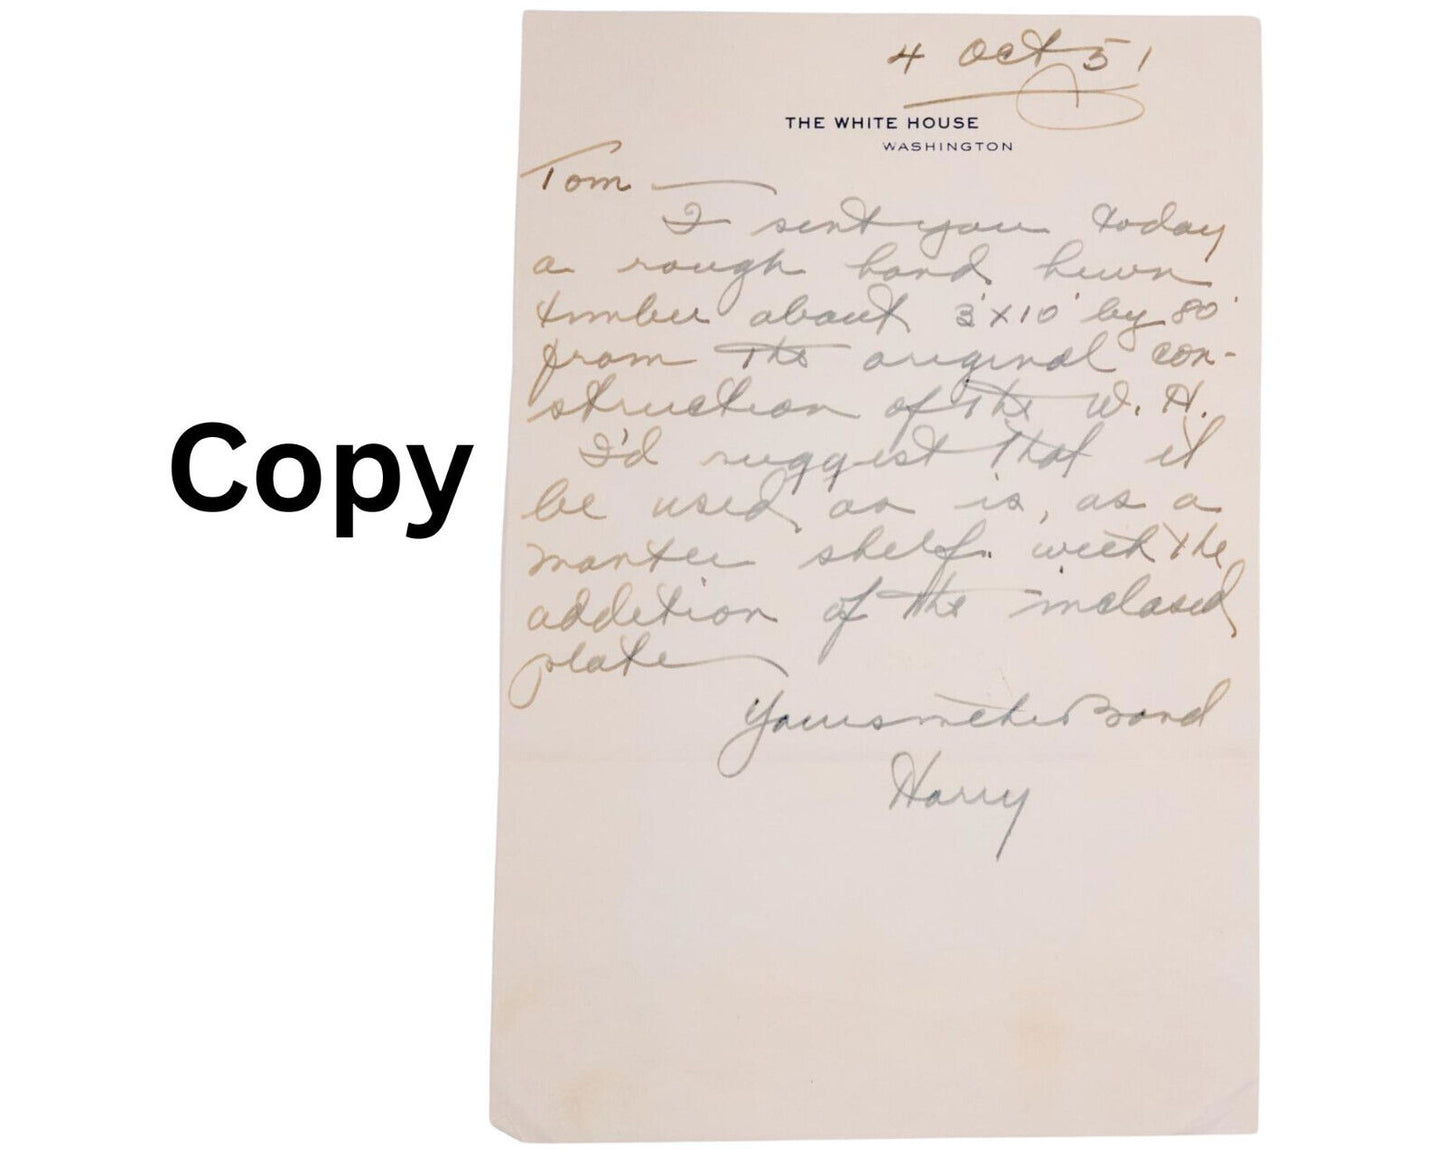 4 Oct 51
THE WHITE HOUSE
WASHINGTON
Tom —
I sent you today
a rough hand hewn
timber about 3'x10' by 80'
from the original con-
struction of the W. H.
I'd suggest that it
be used as is, as a
mantel shelf with the
addition of the inclosed
plate
Yours in the Bond
Harry
Copy